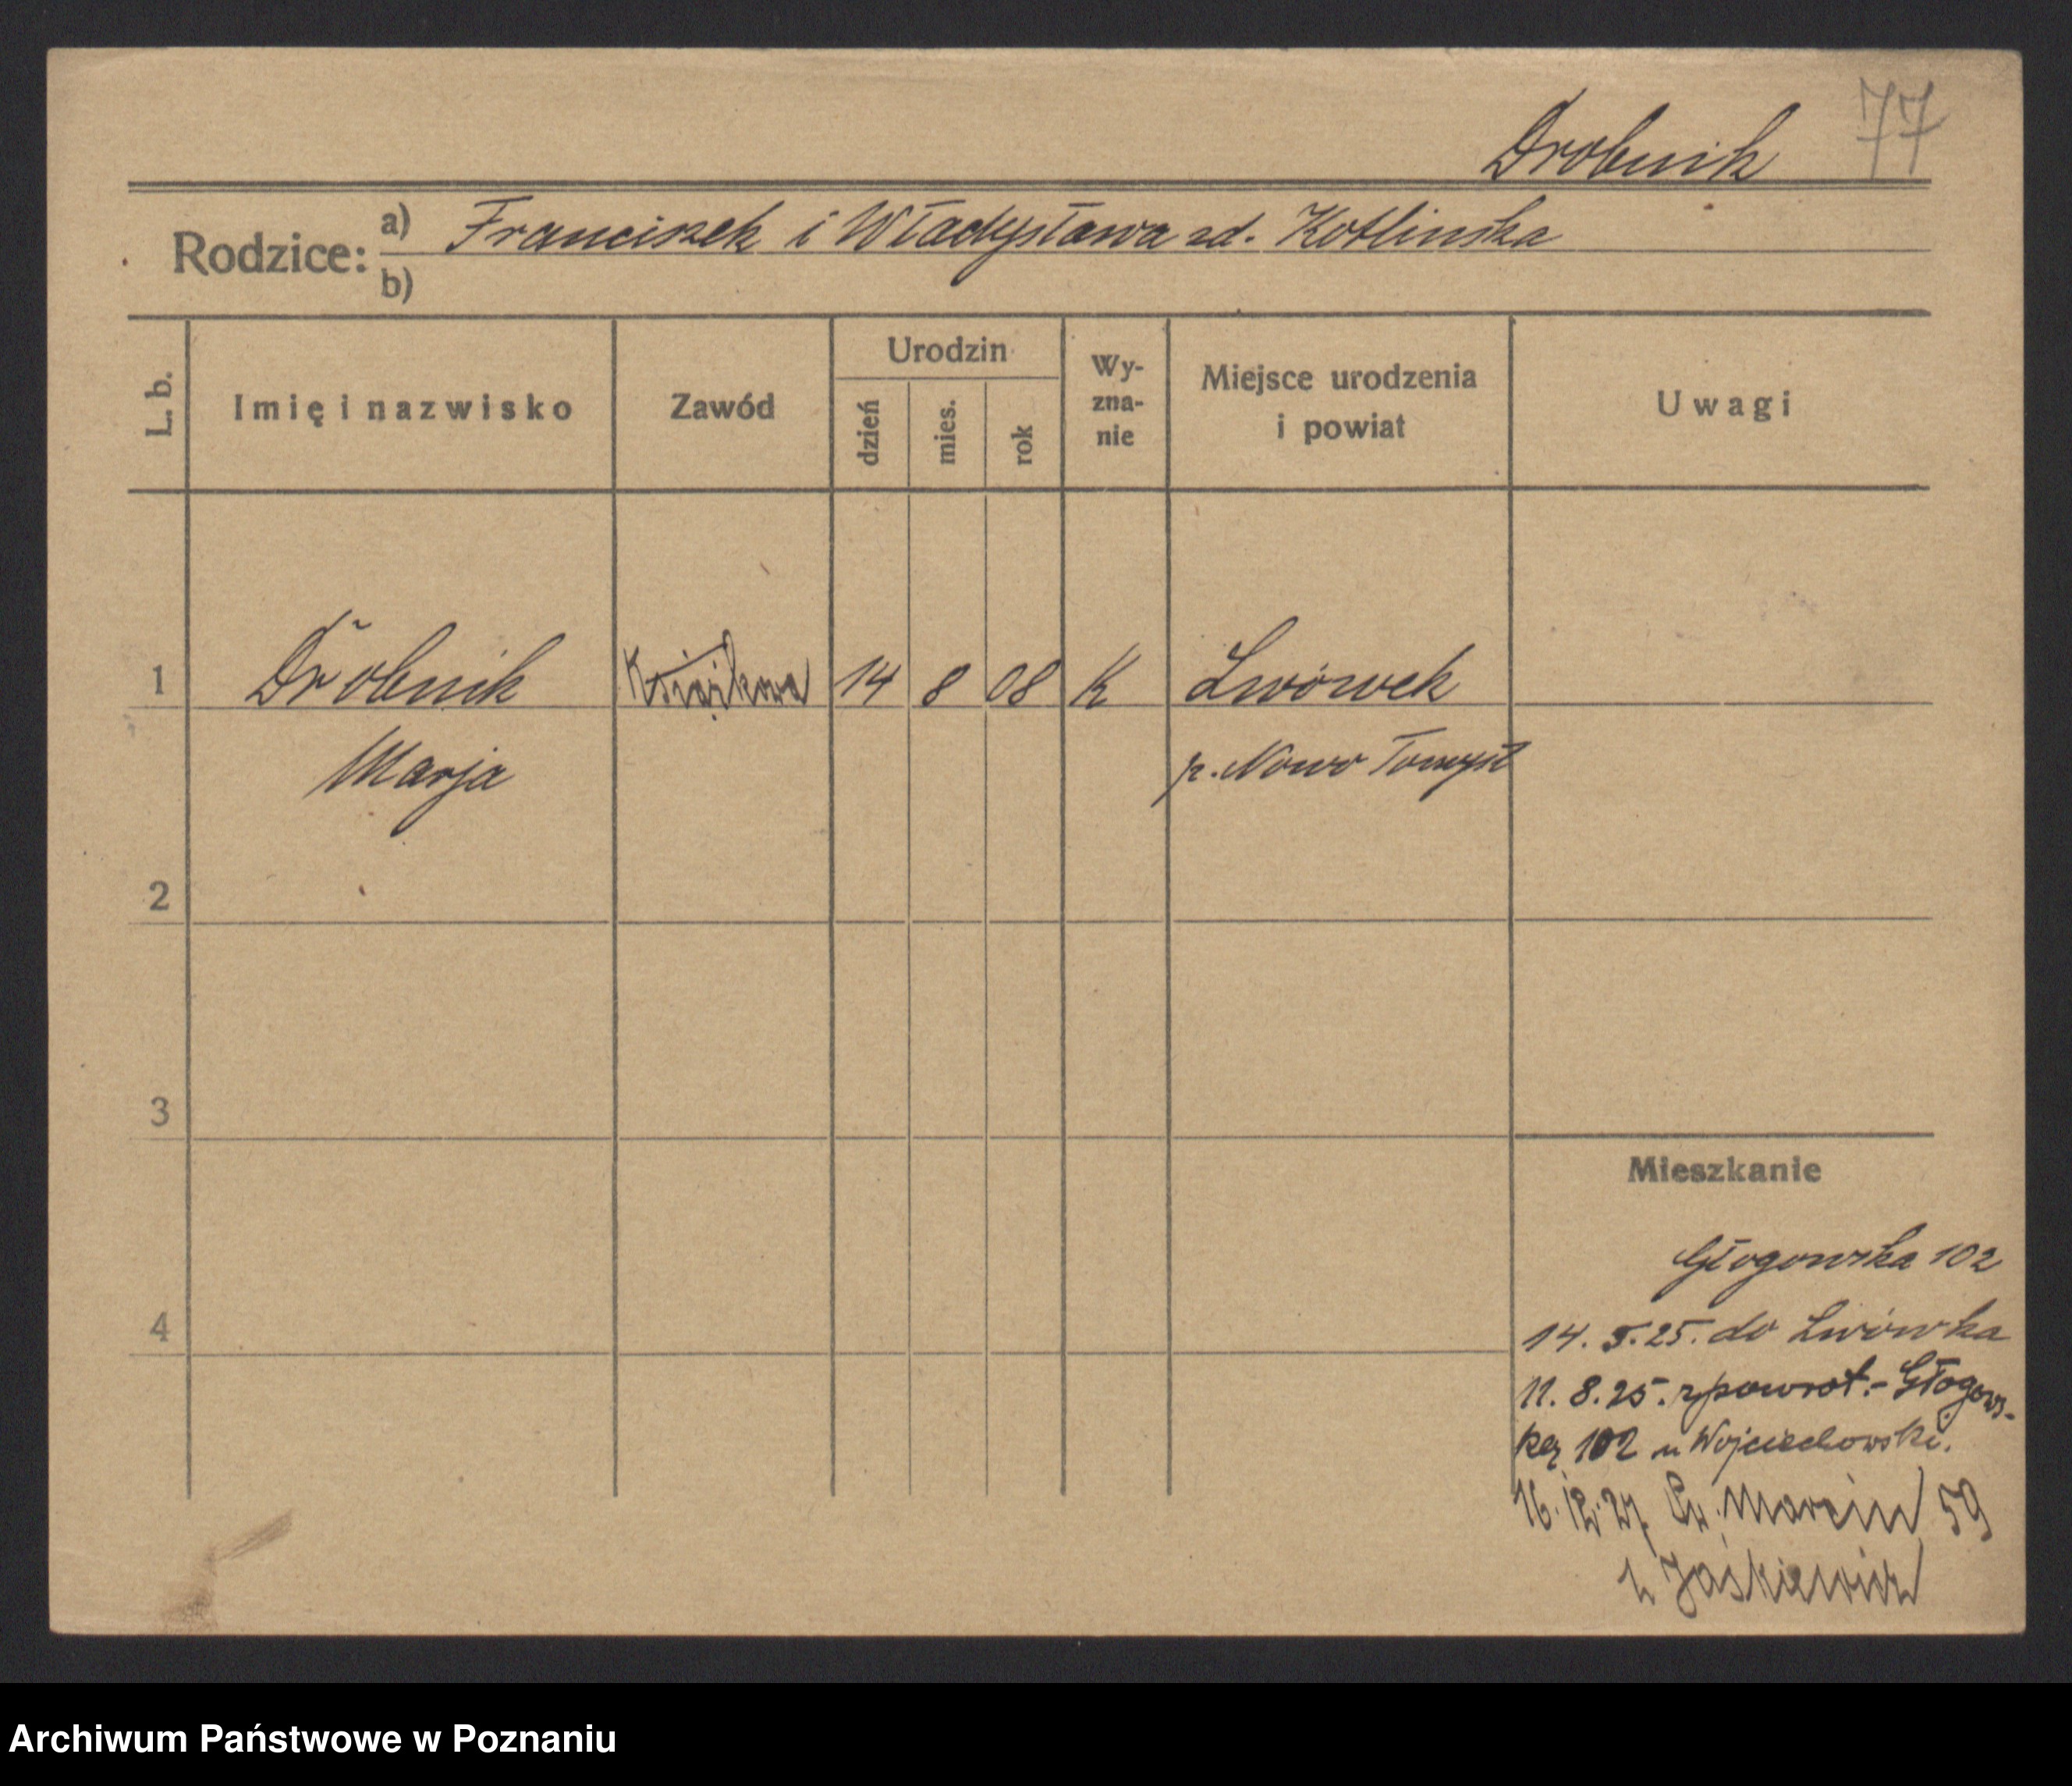 Drobnik 77
Rodzice: a) Franciszek i Władysława zd. Kotlinska
b)
L. b. Imię i nazwisko Zawód Urodzin dzień mies. rok Wy-zna-nie Miejsce urodzenia i powiat Uwagi
1 Drobnik 14 8 08 K Lwówek
Marja p. Nowo Tomyśl
2
3
Mieszkanie
Głogowska 102
4
14. 5. 25. do Lwówka
11. 8. 25. zpowrot.- Głogows-
ką 102 u Wojciechowski.
16. 12. 27. Św. Marcin 59
u Jaśkiewicz
Archiwum Państwowe w Poznaniu